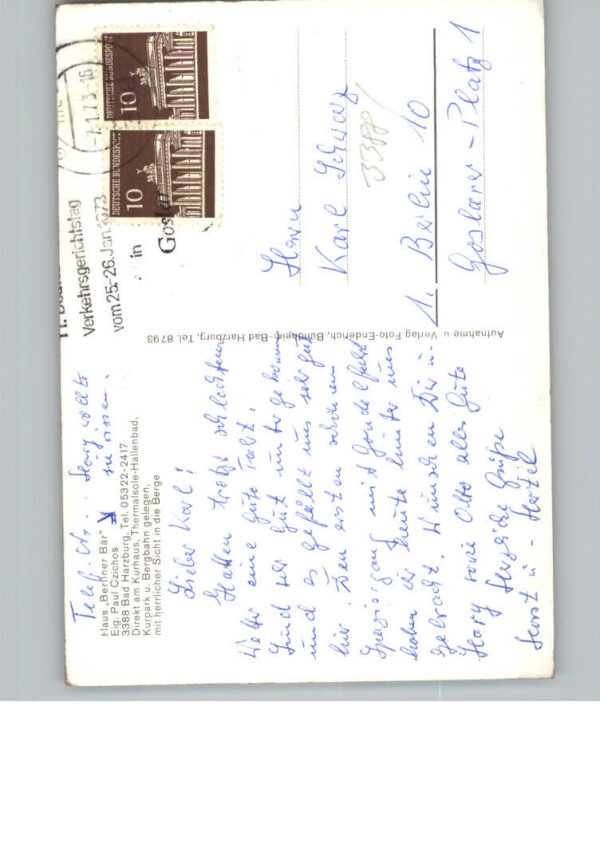 Telef. Nr. Hary wollte
sie wissen.
Haus „Berliner Bär"
Eig. Paul Czichos
3388 Bad Harzburg, Tel. 05322-2417
Direkt am Kurhaus, Thermalsole-Hallenbad,
Kurpark u. Bergbahn gelegen,
mit herrlicher Sicht in die Berge
Lieber Karl!
Hatten trotz schlechten
Wetter eine gute Fahrt.
Sind sehr gut untergekommen
und es gefällt uns sehr gut
hier. Den ersten schönen
Spaziergang mit Gondelfahrt
haben wir heute hinter uns
gebracht. Wünschen Dir u.
Hary sowie Otto alles Gute
Herzliche Grüße
Horst u.
Aufnahme u. Verlag Foto-Enderich, Bündheim-Bad Harzburg, Tel. 8793
Verkehrsgerichtstag
vom 25.-26. Jan. 1973
in
Goslar
-7.1.73-16
DEUTSCHE BUNDESPOST
10
DEUTSCHE BUNDESPOST
10
Herrn
Karl Schwarz
1. Berlin 10
Goslarer-Platz 1